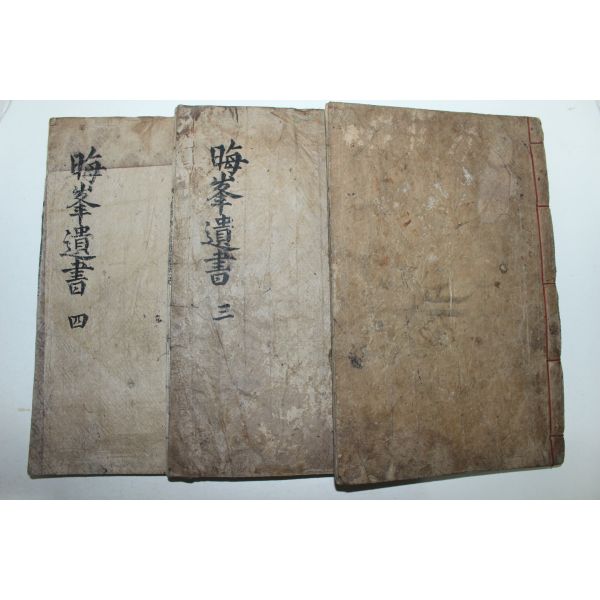 晦峯遺書 四
晦峯遺書 三